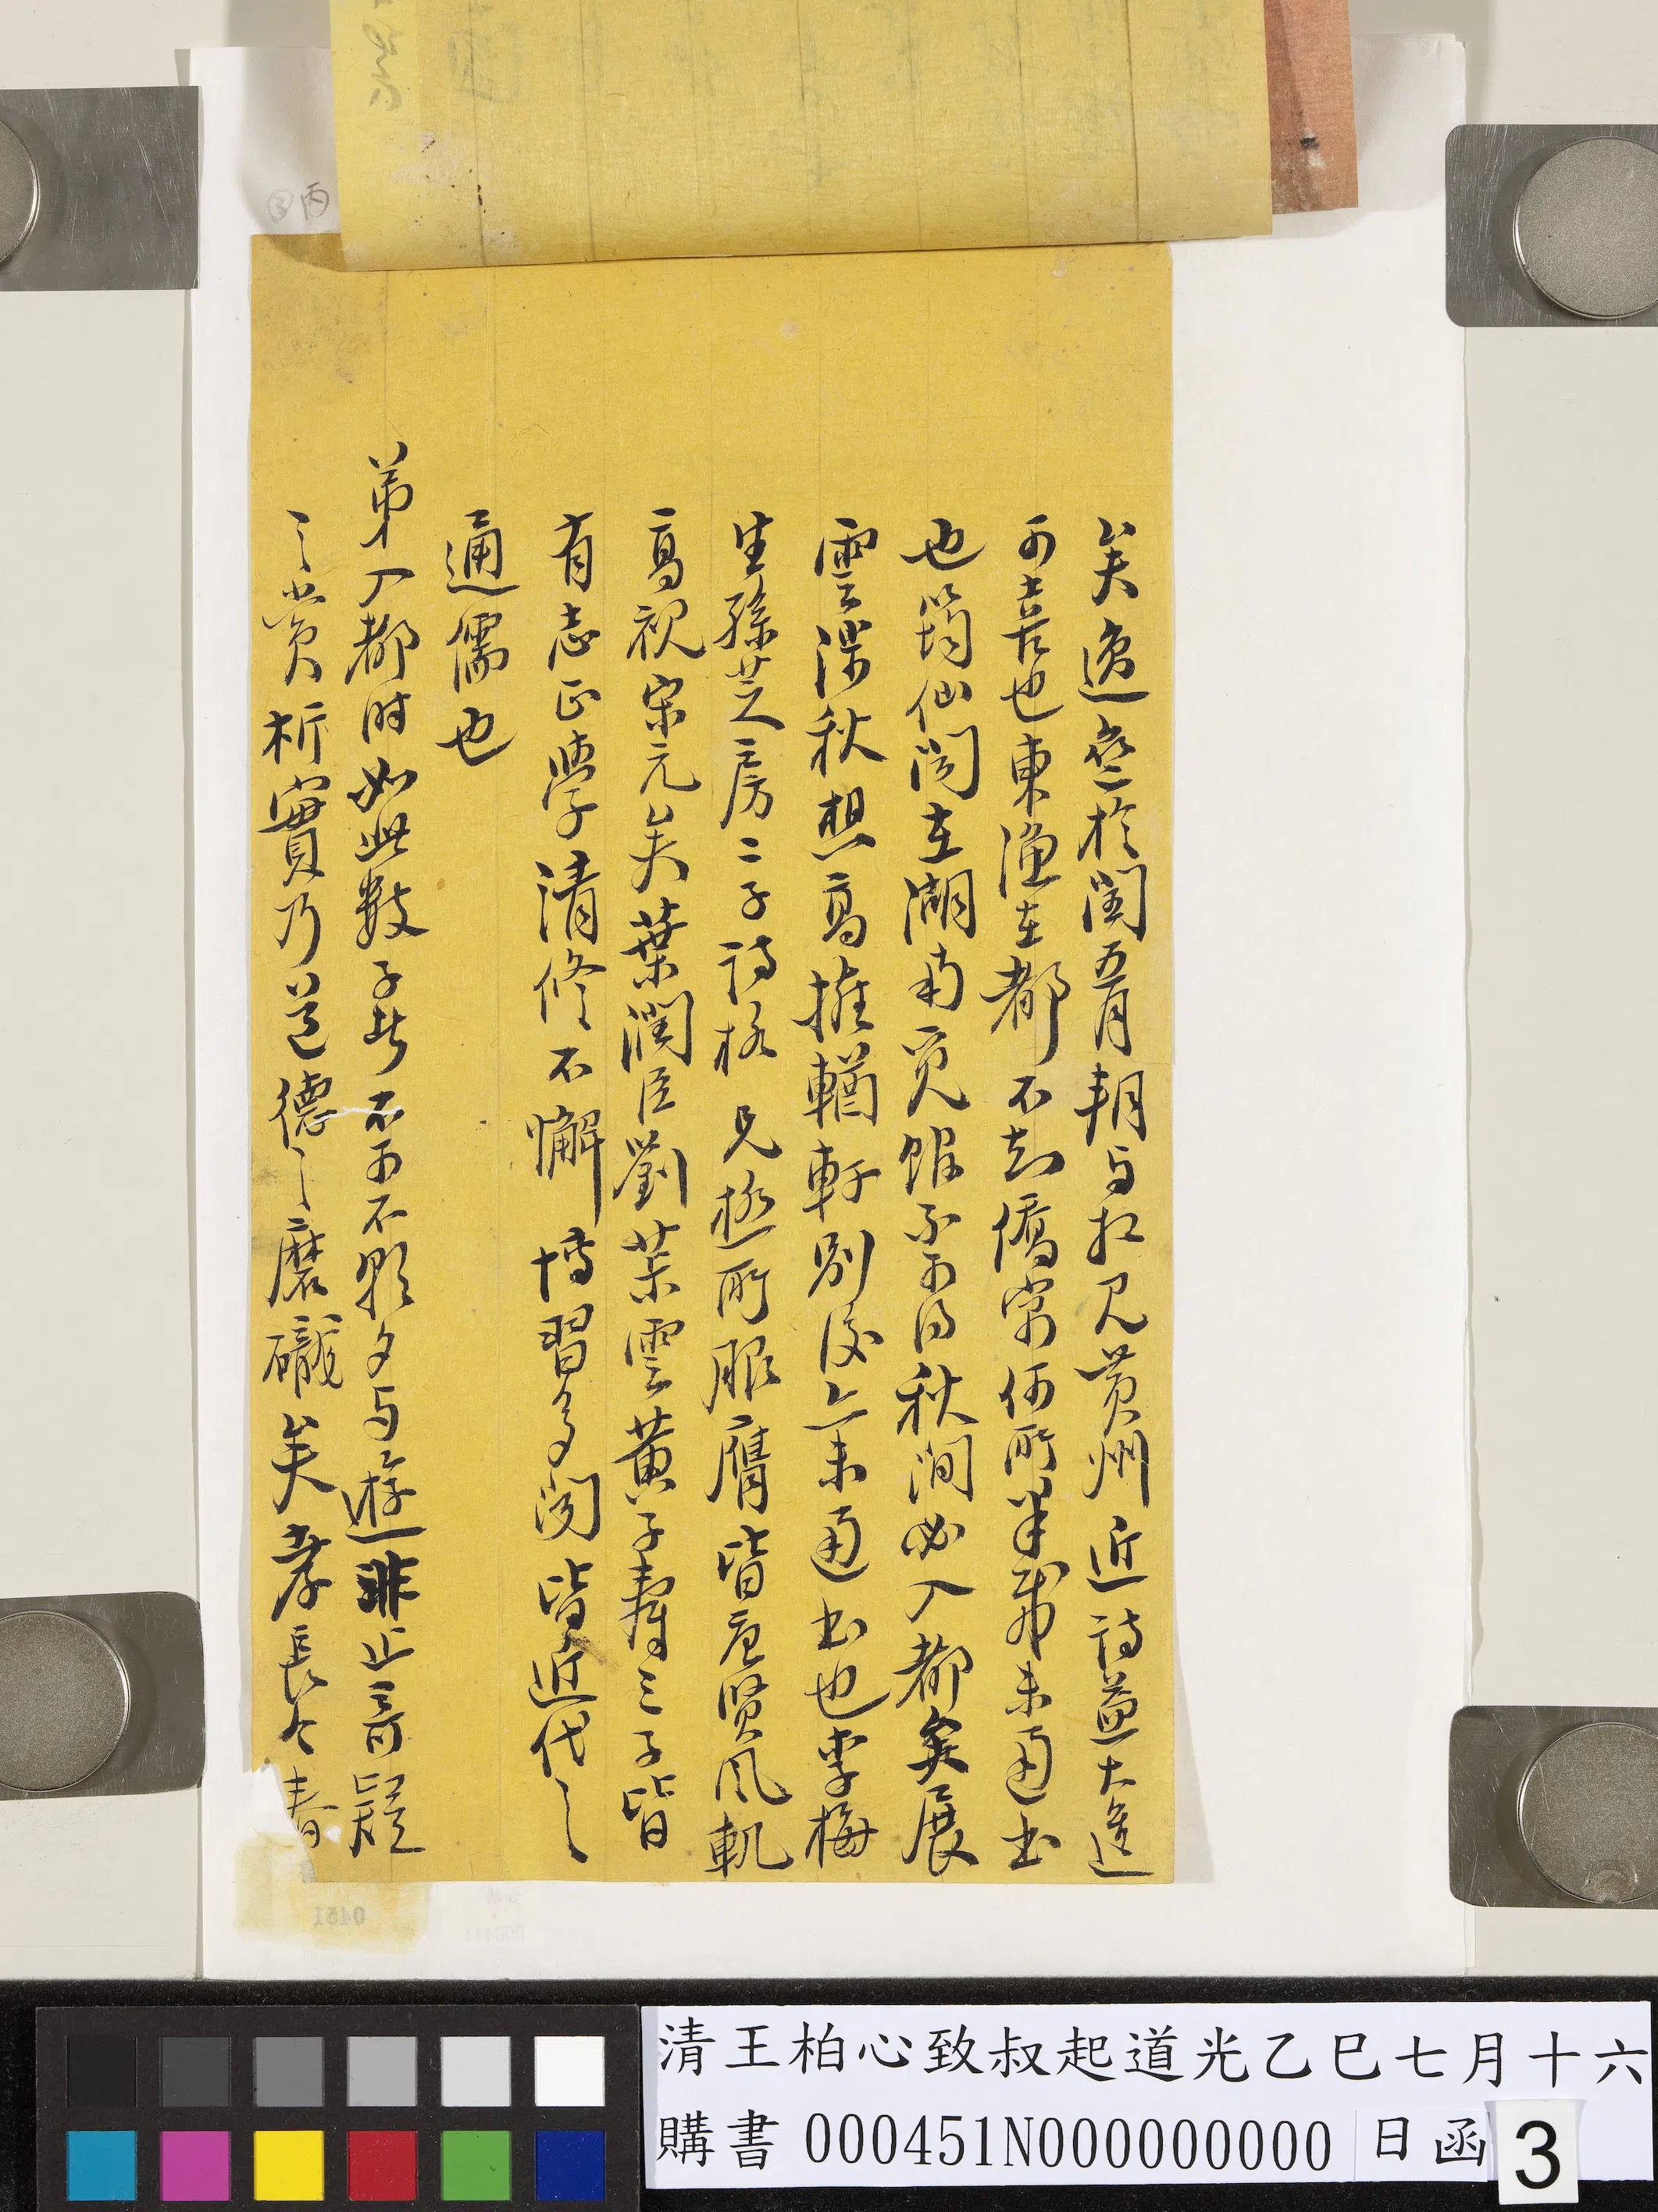 矣逸亭於閏五月朔与扣見黄州近詩益大進
可喜也東漁在都不知僑寓何所半載未通書
也筠仙聞在湖南覓館不可得秋間必入都矣展
雲滌秋想高擁輶軒別後亦未通書也李梅
生孫芝房二子詩格兄極所服膺皆唐賢風軌
高視宋元矣葉潤臣劉茮雲黄子壽三子皆
有志正學清修不懈博習多聞皆近代之
通儒也
弟入都时如此數子者不可不朝夕与遊非止奇疑
之賞析實乃道德之磨礲矣孝長今春
③丙
清王柏心致叔起道光乙巳七月十六
購書 000451N000000000 日函 3